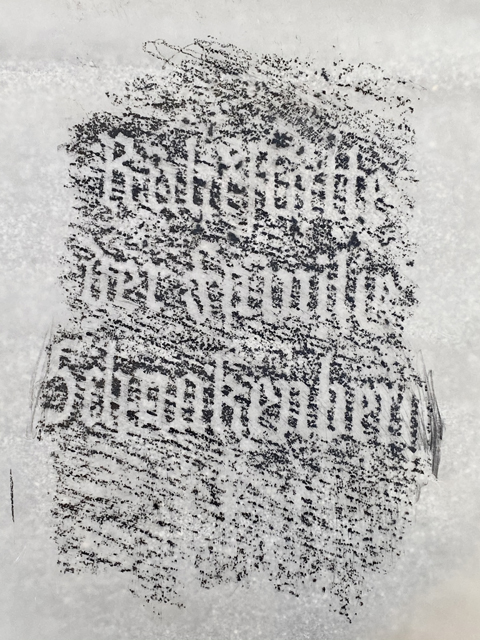 Ruhestätte
der Familie
Schnakenberg